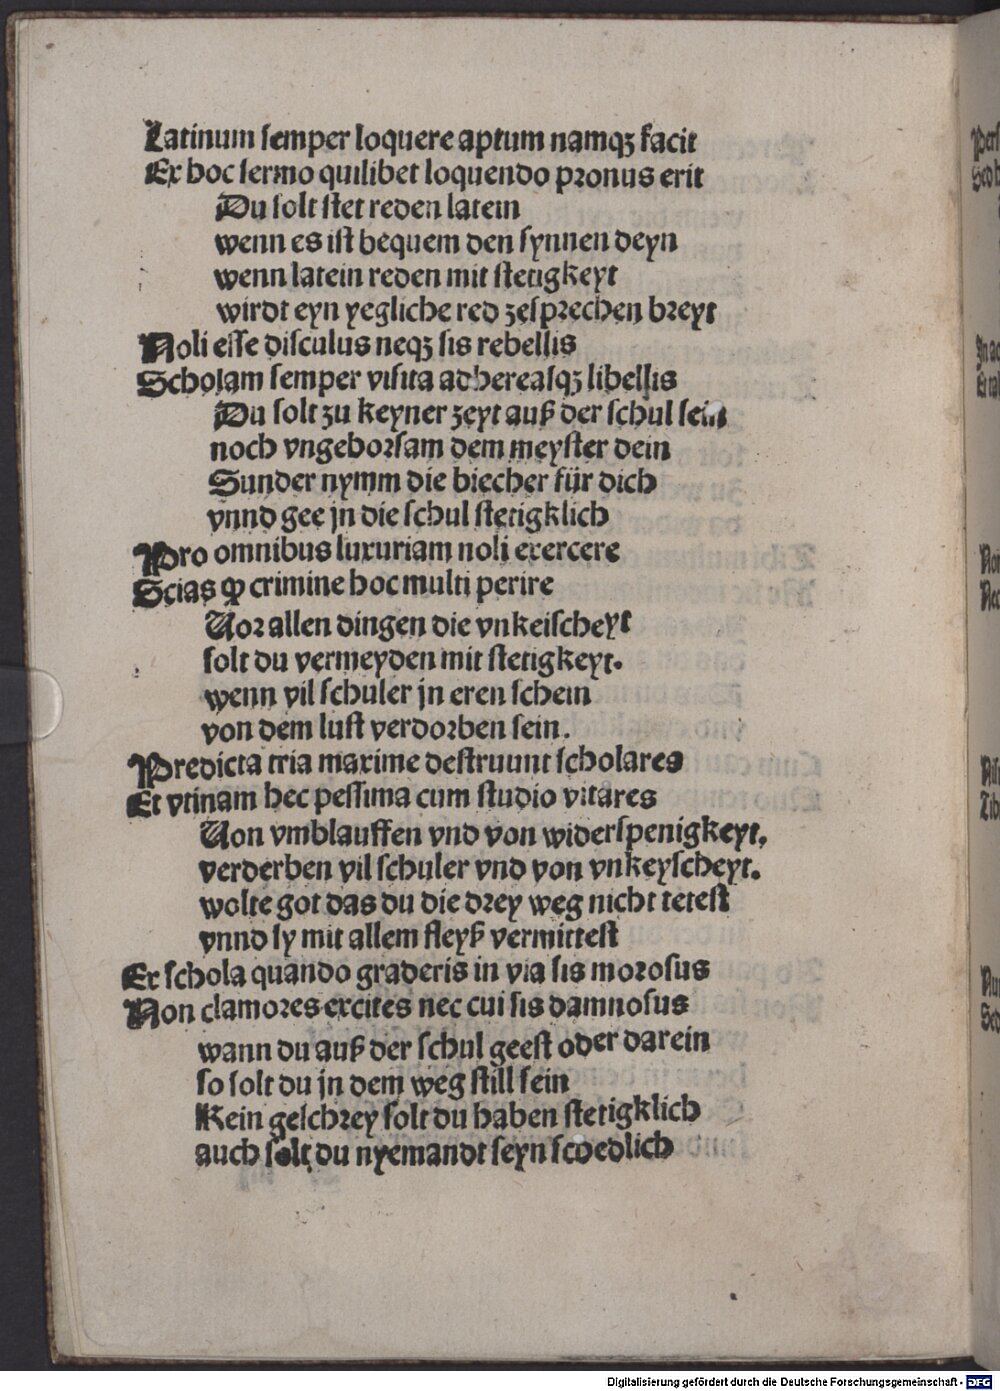 Latinum semper loquere aptum namqꝫ facit
Ex hoc sermo quilibet loquendo pronus erit
Du solt stet reden latein
wenn es ist bequem den synnen deyn
wenn latein reden mit stetigkeyt
wirdt eyn yegliche red zesprechen breyt
Noli esse disculus neqꝫ sis rebellis
Scholam semper visita adhereasqꝫ libellis
Du solt zu keyner zeyt auß der schul sein
noch vngehorsam dem meyster dein
Sunder nymm die biecher für dich
vnnd gee jn die schul stetigklich
Pro omnibus luxuriam noli exercere
Scias ꝙ crimine hoc multi perire
Uor allen dingen die vnkeischeyt
solt du vermeyden mit stetigkeyt.
wenn vil schuler jn eren schein
von dem lust verdorben sein.
Predicta tria maxime destruunt scholares
Et vtinam hec pessima cum studio vitares
Uon vmblauffen vnd von widerspenigkeyt,
verderben vil schuler vnd von vnkeyscheyt.
wolte got das du die drey weg nicht tetest
vnnd sy mit allem fleyß vermittest
Ex schola quando graderis in via sis morosus
Non clamores excites nec cui sis damnosus
wann du auß der schul geest oder darein
so solt du jn dem weg still sein
Kein geschrey solt du haben stetigklich
auch solt du nyemandt seyn scoedlich
Digitalisierung gefördert durch die Deutsche Forschungsgemeinschaft - DFG